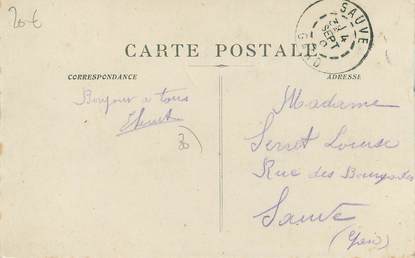 20 €
SAUVE
4
SEPT
GARD
CARTE POSTALE
CORRESPONDANCE
ADRESSE
Bonjour a tous
30
Madame
Serret Louise
Rue des Bourgades
Sauve
(Gard)